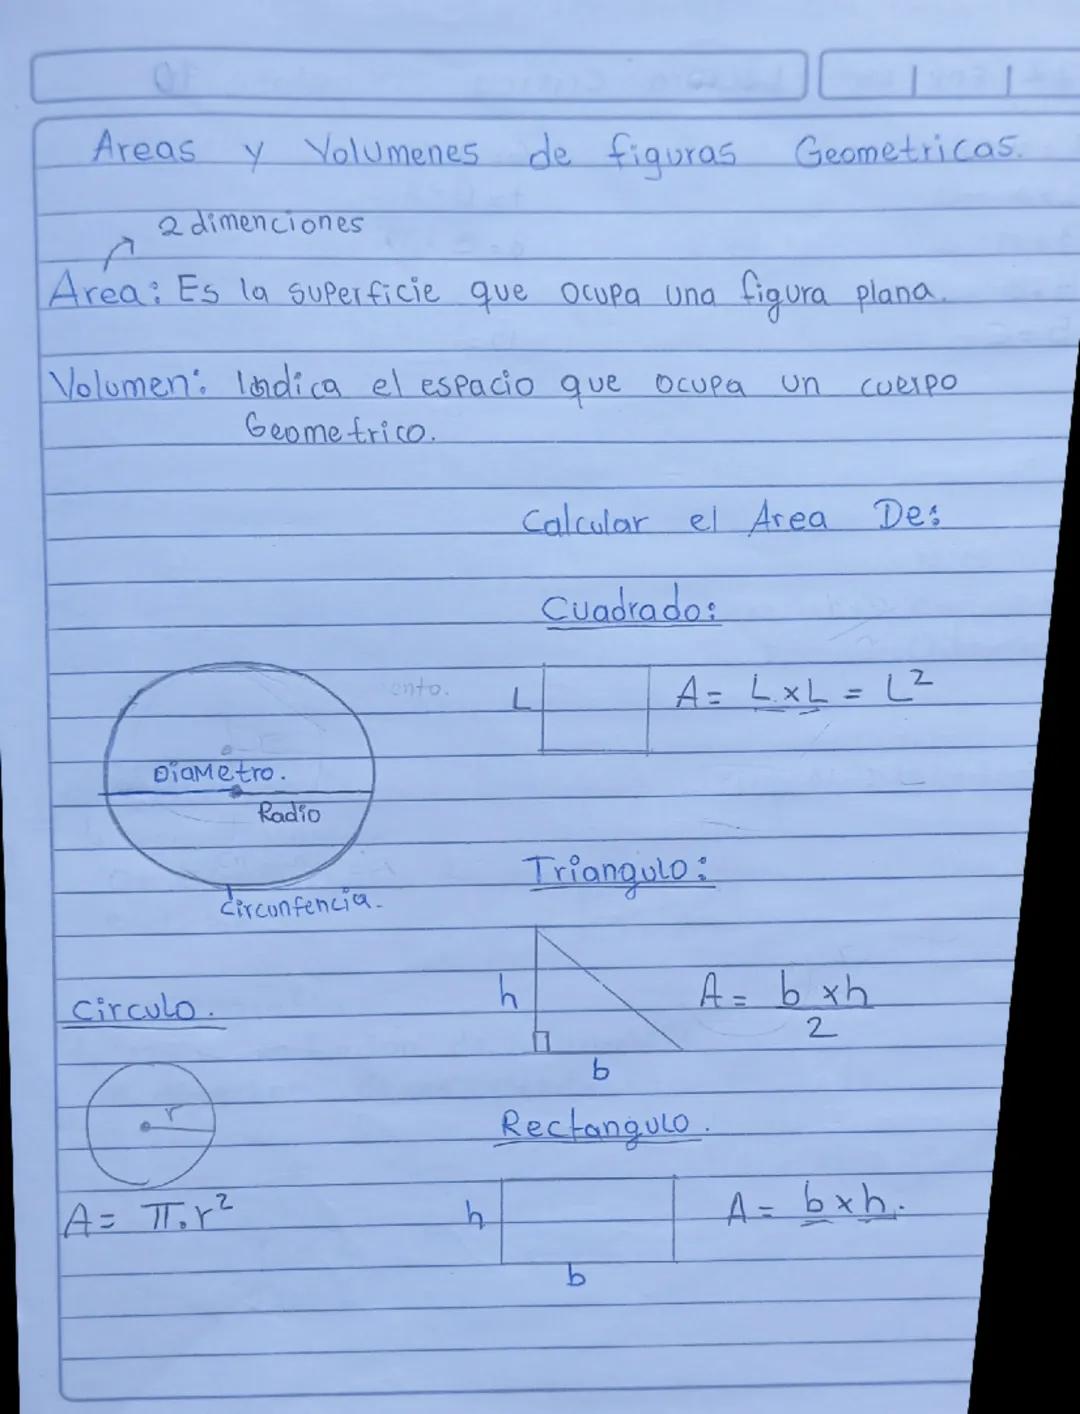 Areas y Volumenes de figuras Geometricas.
2 dimenciones
Area: Es la superficie que ocupa una figura plana.
Volumen: Indica el espacio que ocupa un cuerpo
Geometrico.
Calcular el Area De:
Cuadrado:
L
A = L x L = L²
Diametro.
Radio
circunfencia.
Triangulo:
h
b
A = b x h
2
Circulo.
r
A = π.r²
Rectangulo.
h
b
A = b x h.